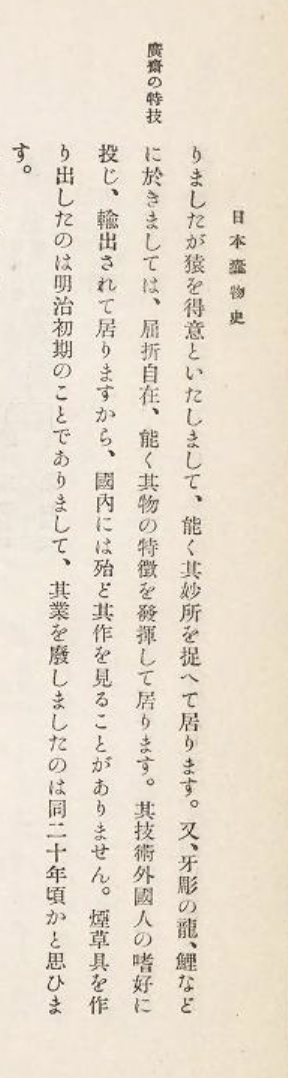 日本蠧物史
廣齋の特技
りましたが猿を得意といたしまして、能く其妙所を捉へて居ります。又、牙彫の龍、鯉など
に於きましては、屈折自在、能く其物の特徵を發揮して居ります。其技術外國人の嗜好に
投じ、輸出されて居りますから、國內には殆ど其作を見ることがありません。煙草具を作
り出したのは明治初期のことでありまして、其業を廢しましたのは同二十年頃かと思ひま
す。